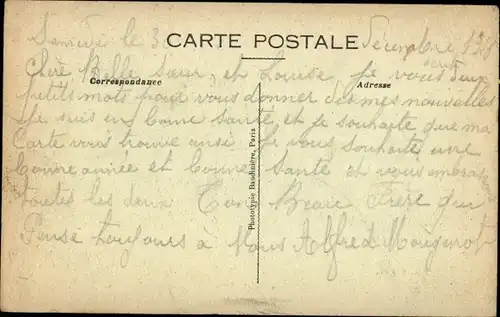 Samedi le 30 Décembre
CARTE POSTALE
Chère Belle Sœur, et Louise, je vous deux
Correspondance
Adresse
petits mots pour vous donner des mes nouvelles
Je suis en bonne santé et je souhaite que ma
Carte vous trouve ansi. Je vous souhaite une
bonne année et bonne Santé et vous
toutes les deux Ton Beau Frère qui
Pense toujours à Vous Alfred Mougenot
Phototypie Baudinière, Paris